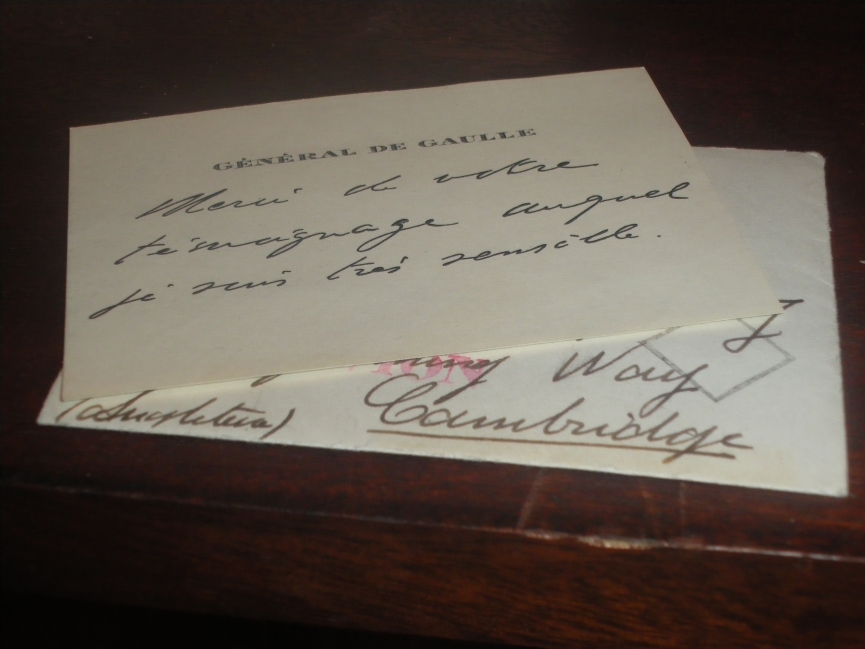 GÉNÉRAL DE GAULLE
Merci de votre
témoignage auquel
je suis très sensible.
Way
(Angleterre) Cambridge